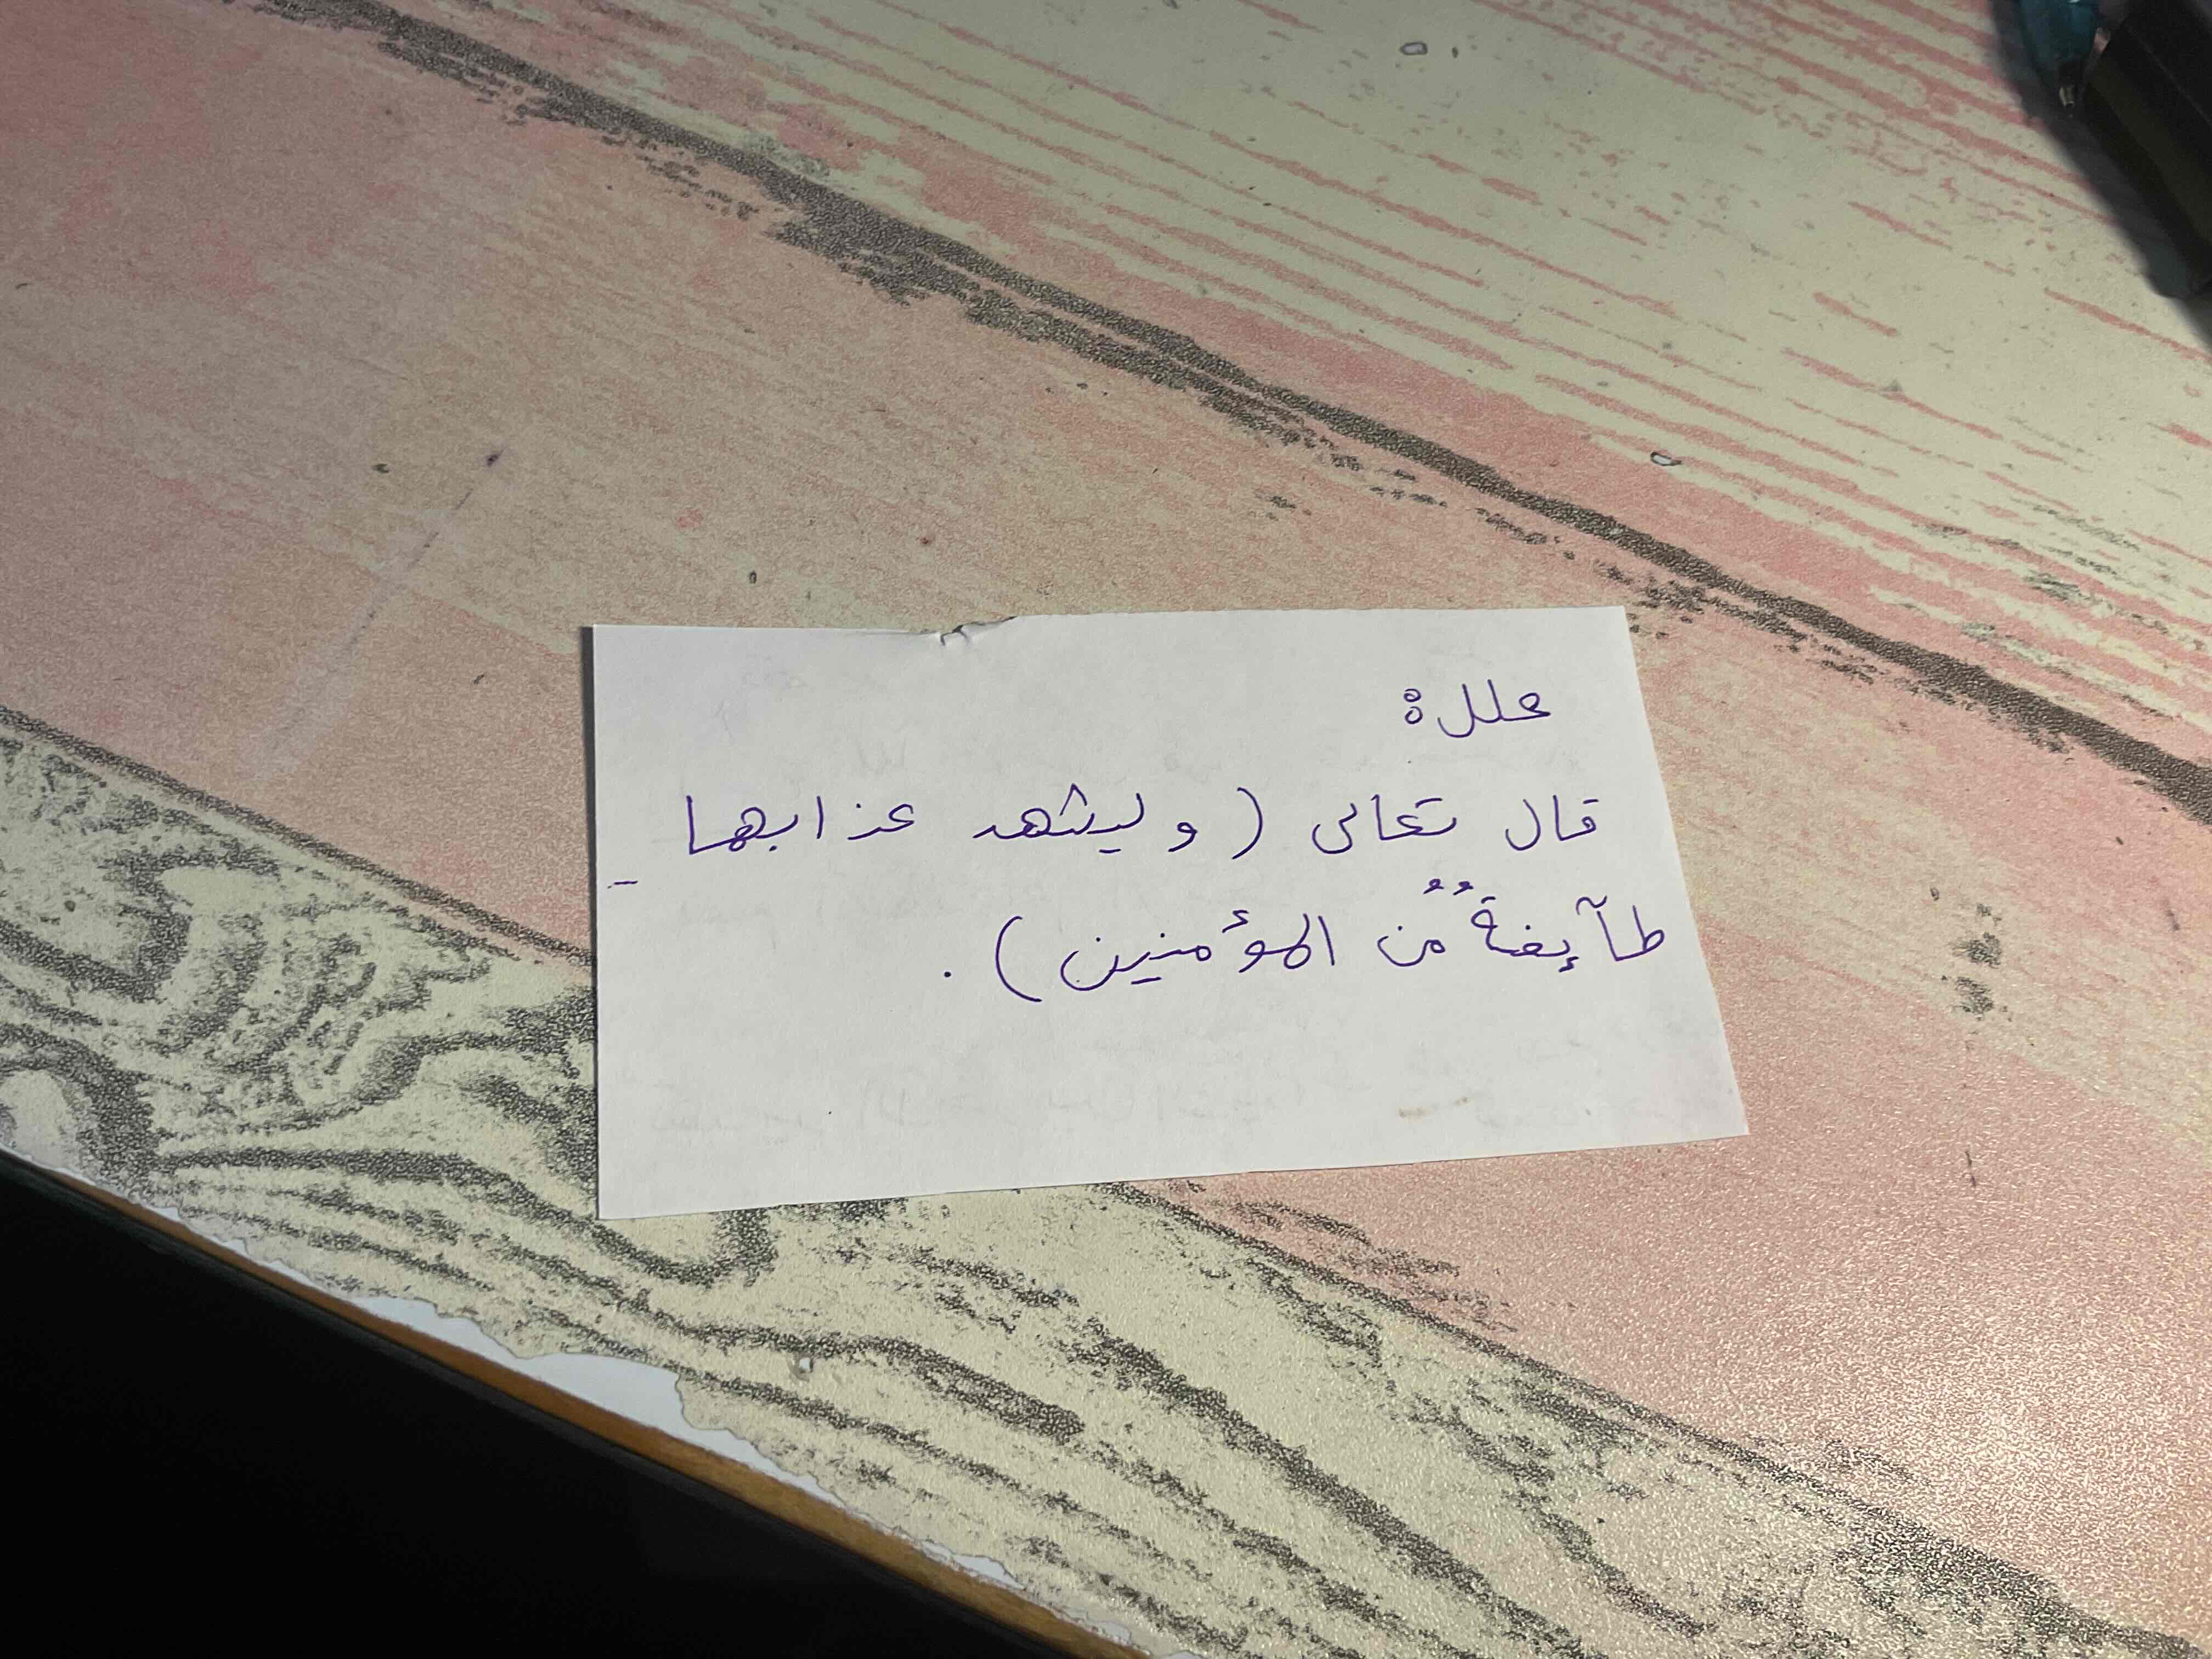 علل:
قال تعالى ( وليشهد عذابها -
طآئفةٌ مٌن المؤمنين ) .